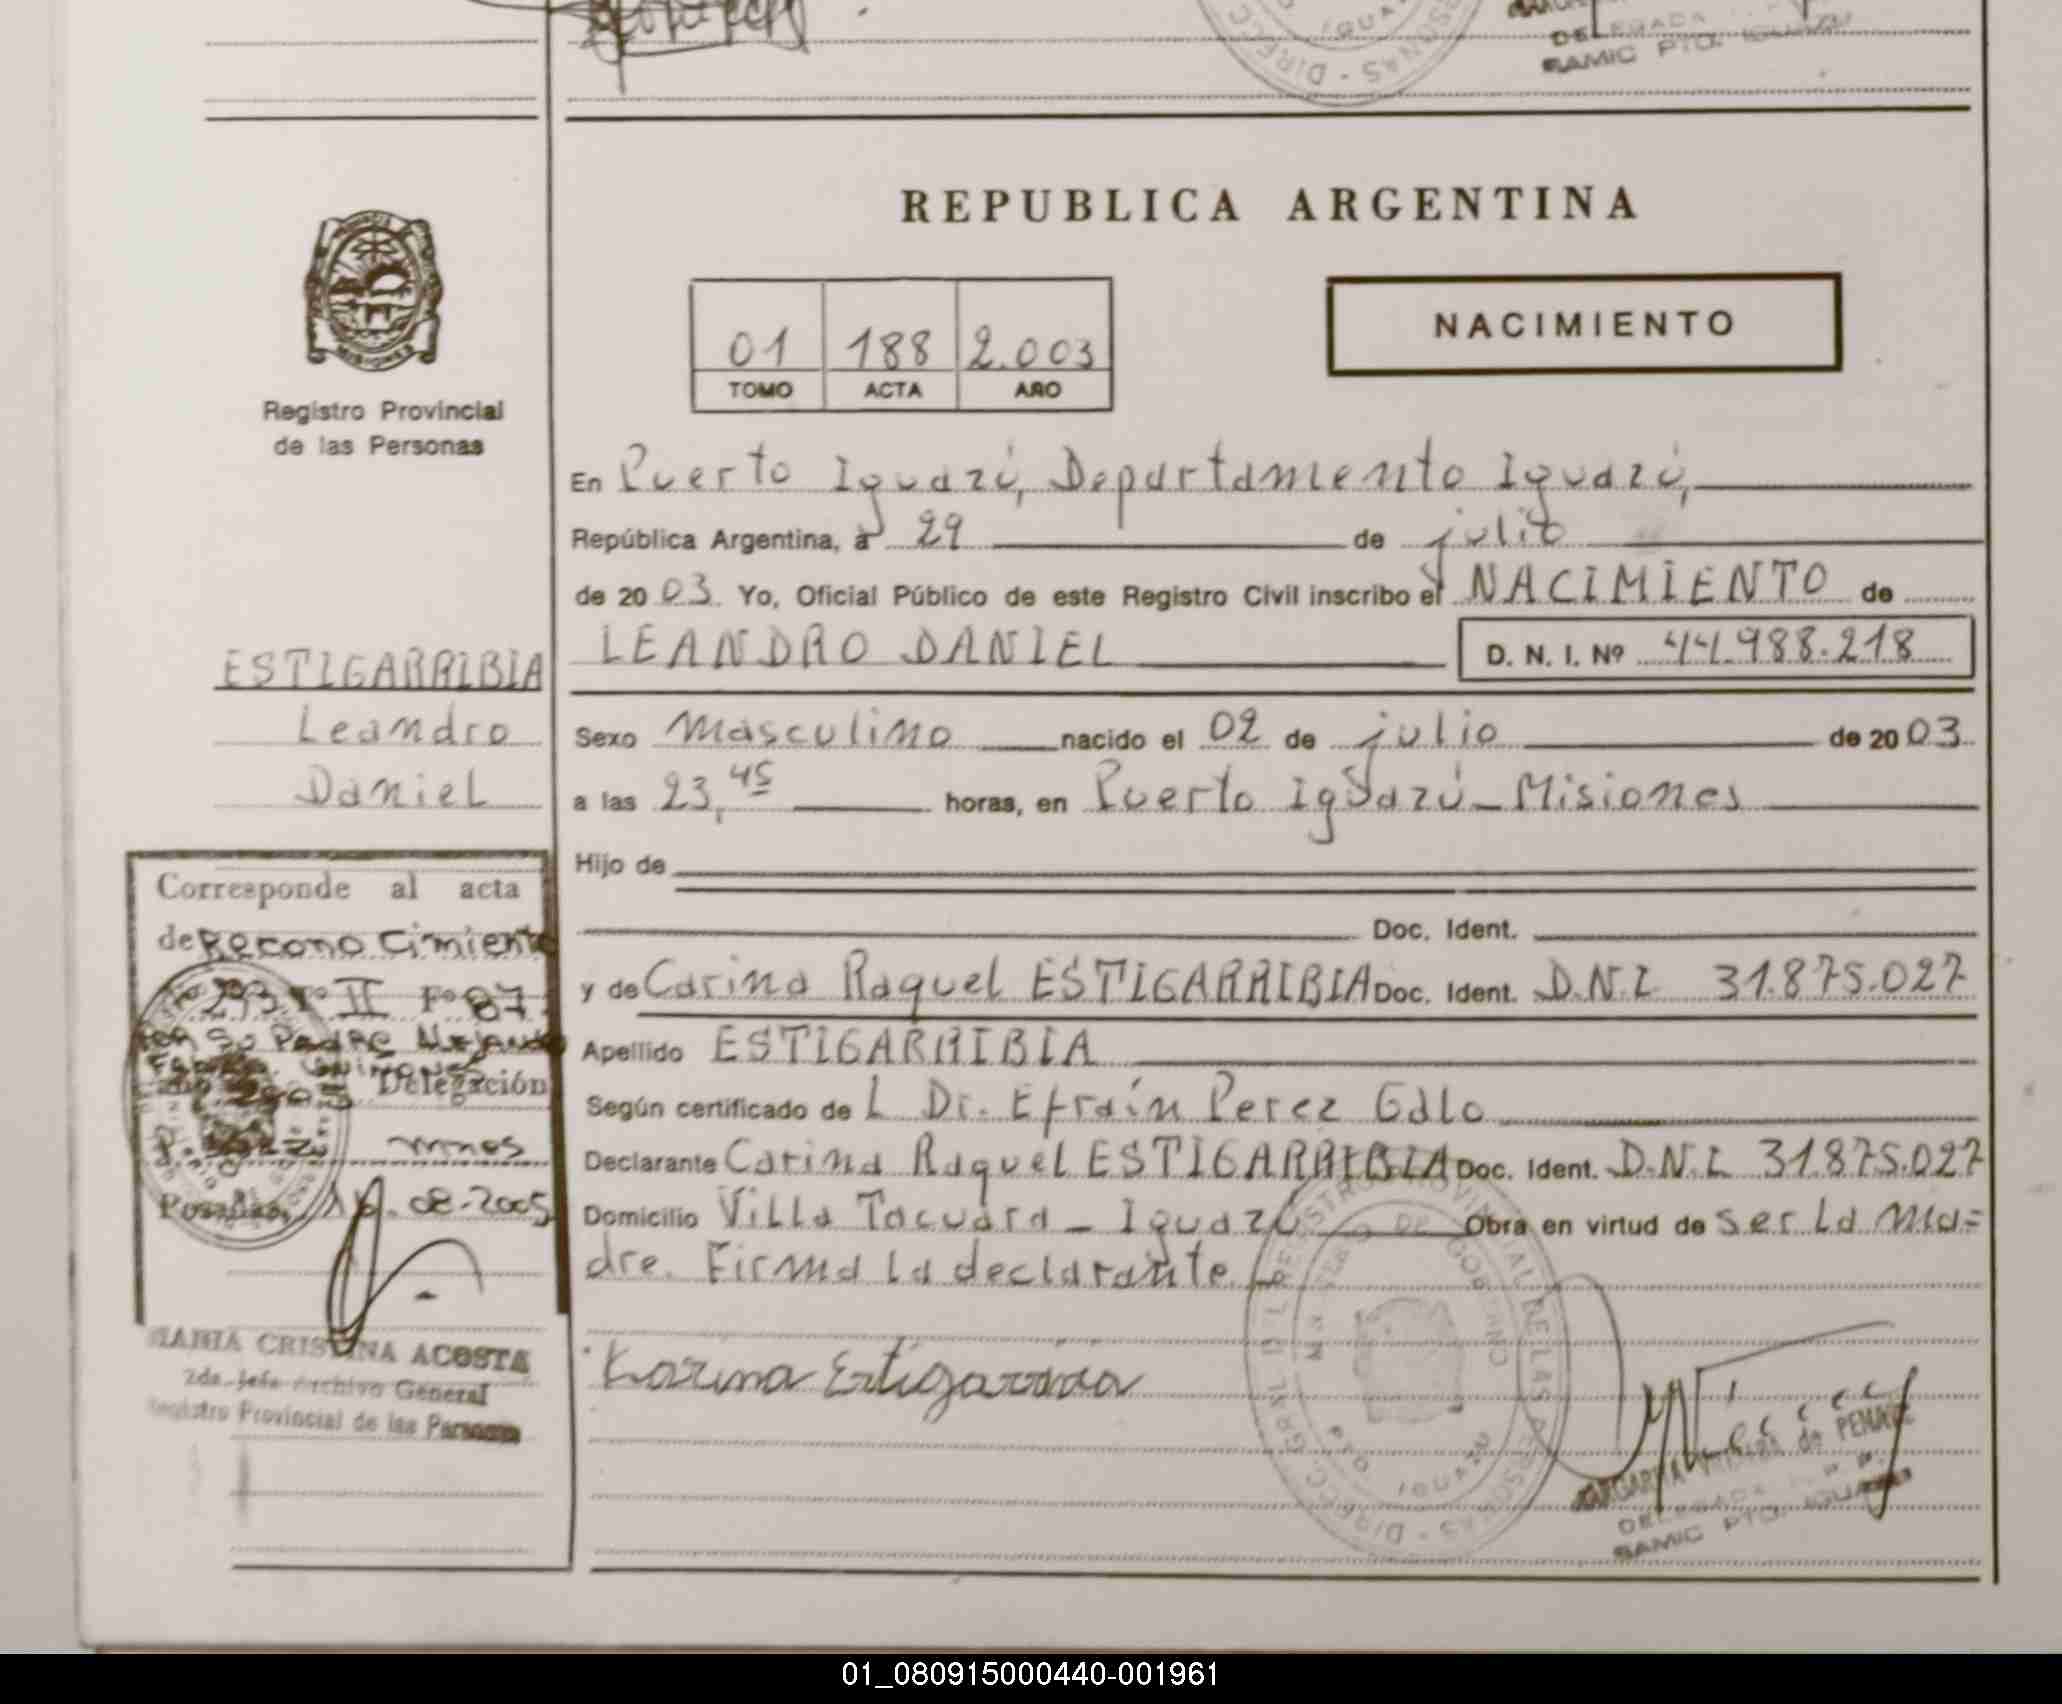 DELEGADA
SAMIC PTO. IGUAZU
REPUBLICA ARGENTINA
MISIONES
Registro Provincial
de las Personas
01 188 2.003
TOMO ACTA AÑO
NACIMIENTO
En Puerto Iguazú, Departamento Iguazú,
República Argentina, a 29 de julio
de 2003. Yo, Oficial Público de este Registro Civil inscribo el NACIMIENTO de
LEANDRO DANIEL D. N. I. Nº 44.988.218
ESTIGARRIBIA
Leandro
Daniel
Sexo Masculino nacido el 02 de julio de 2003.
a las 23,45 horas, en Puerto Iguazú - Misiones
Hijo de
Doc. Ident.
y de Carina Raquel ESTIGARRIBIA Doc. Ident. D.N.I. 31.875.027
Apellido ESTIGARRIBIA
Según certificado de L Dr. Efraín Perez Galo
Declarante Carina Raquel ESTIGARRIBIA Doc. Ident. D.N.I. 31.875.027
Domicilio Villa Tacuara - Iguazú Obra en virtud de ser la ma=
dre. Firma la declarante.
Karina Estigarribia
Corresponde al acta
de Reconocimiento
293 Tº II Fº 87
por su Padre Alejandro
Delegación
mnes
Posadas, 08-2005
MARIA CRISTINA ACOSTA
2da. Jefe Archivo General
Registro Provincial de las Personas
de PENAYE
DELEGADA
SAMIC PTO. IGUAZU
01_080915000440-001961